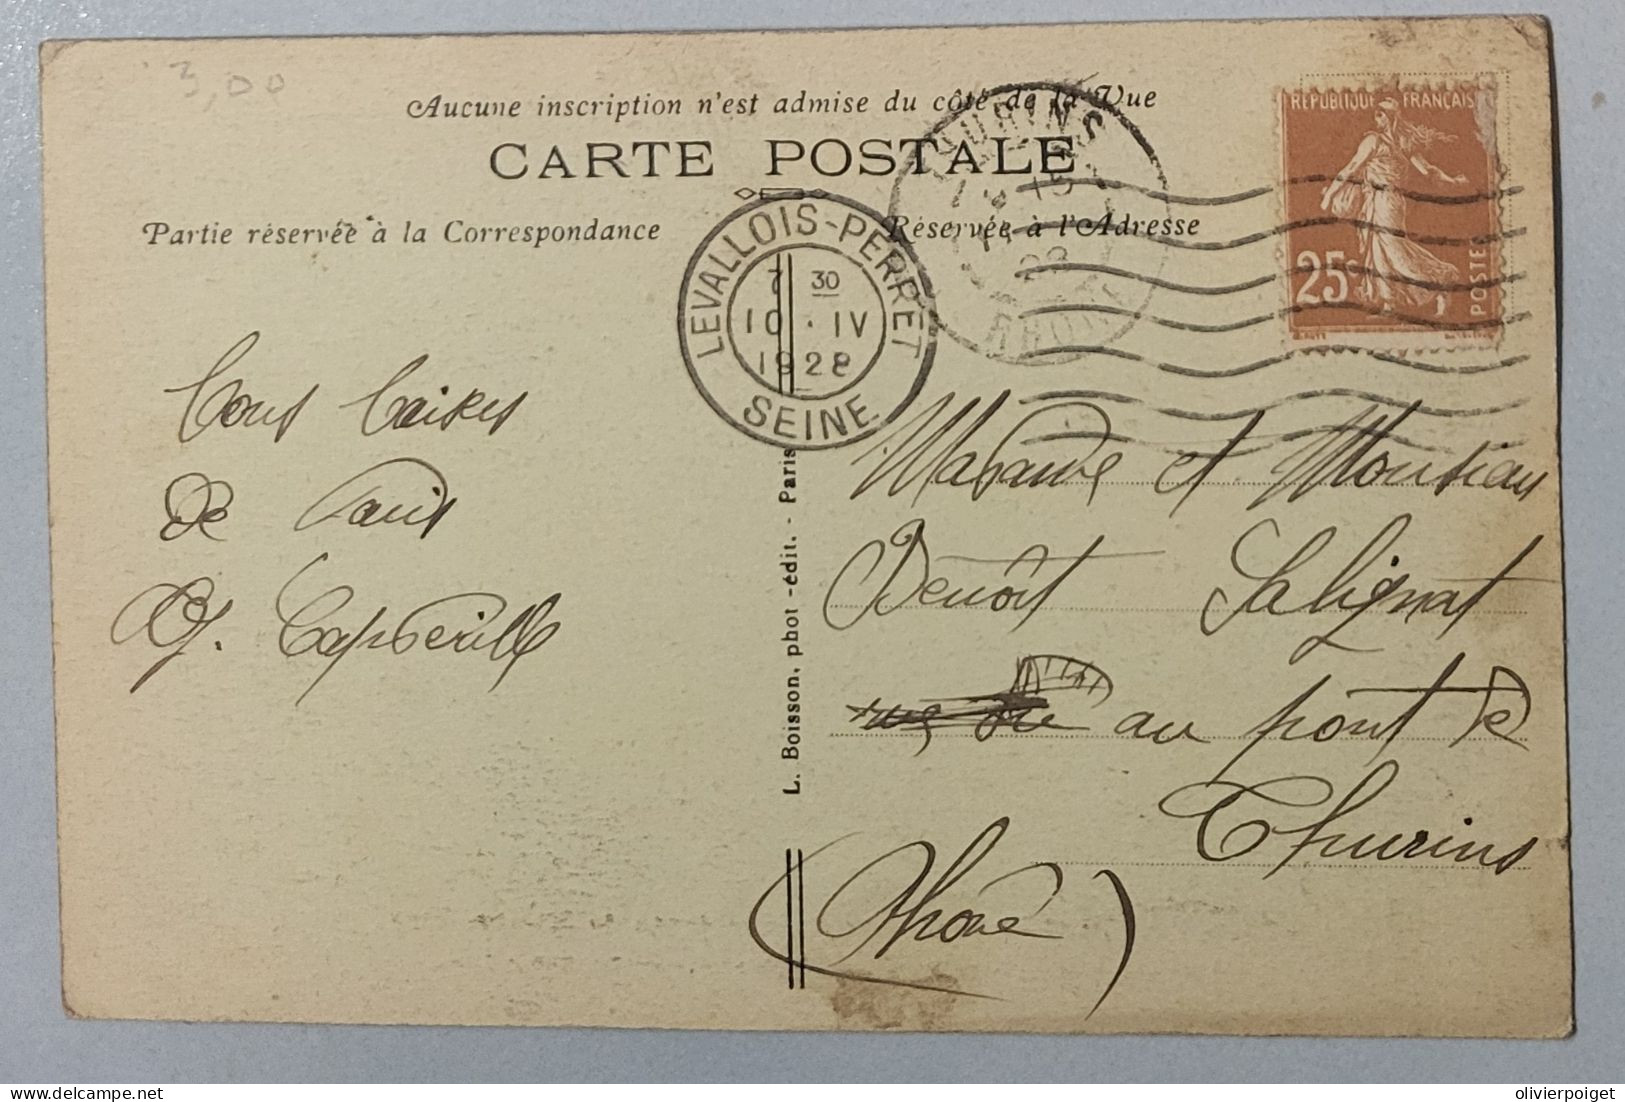 3,00
Aucune inscription n'est admise du côté de la Vue
CARTE POSTALE
Partie réservée à la Correspondance
Réservée à l'Adresse
LEVALLOIS-PERRET
7 30
10 · IV
1928
SEINE
THURINS
15
28
RHONE
REPUBLIQUE FRANÇAISE
25c
POSTES
Bons Baisers
de Paris
Madame et Monsieur
Benoît Salignat
au pont de
Thurins
(Rhône)
L. Boisson, phot -édit. - Paris
olivierpoiget